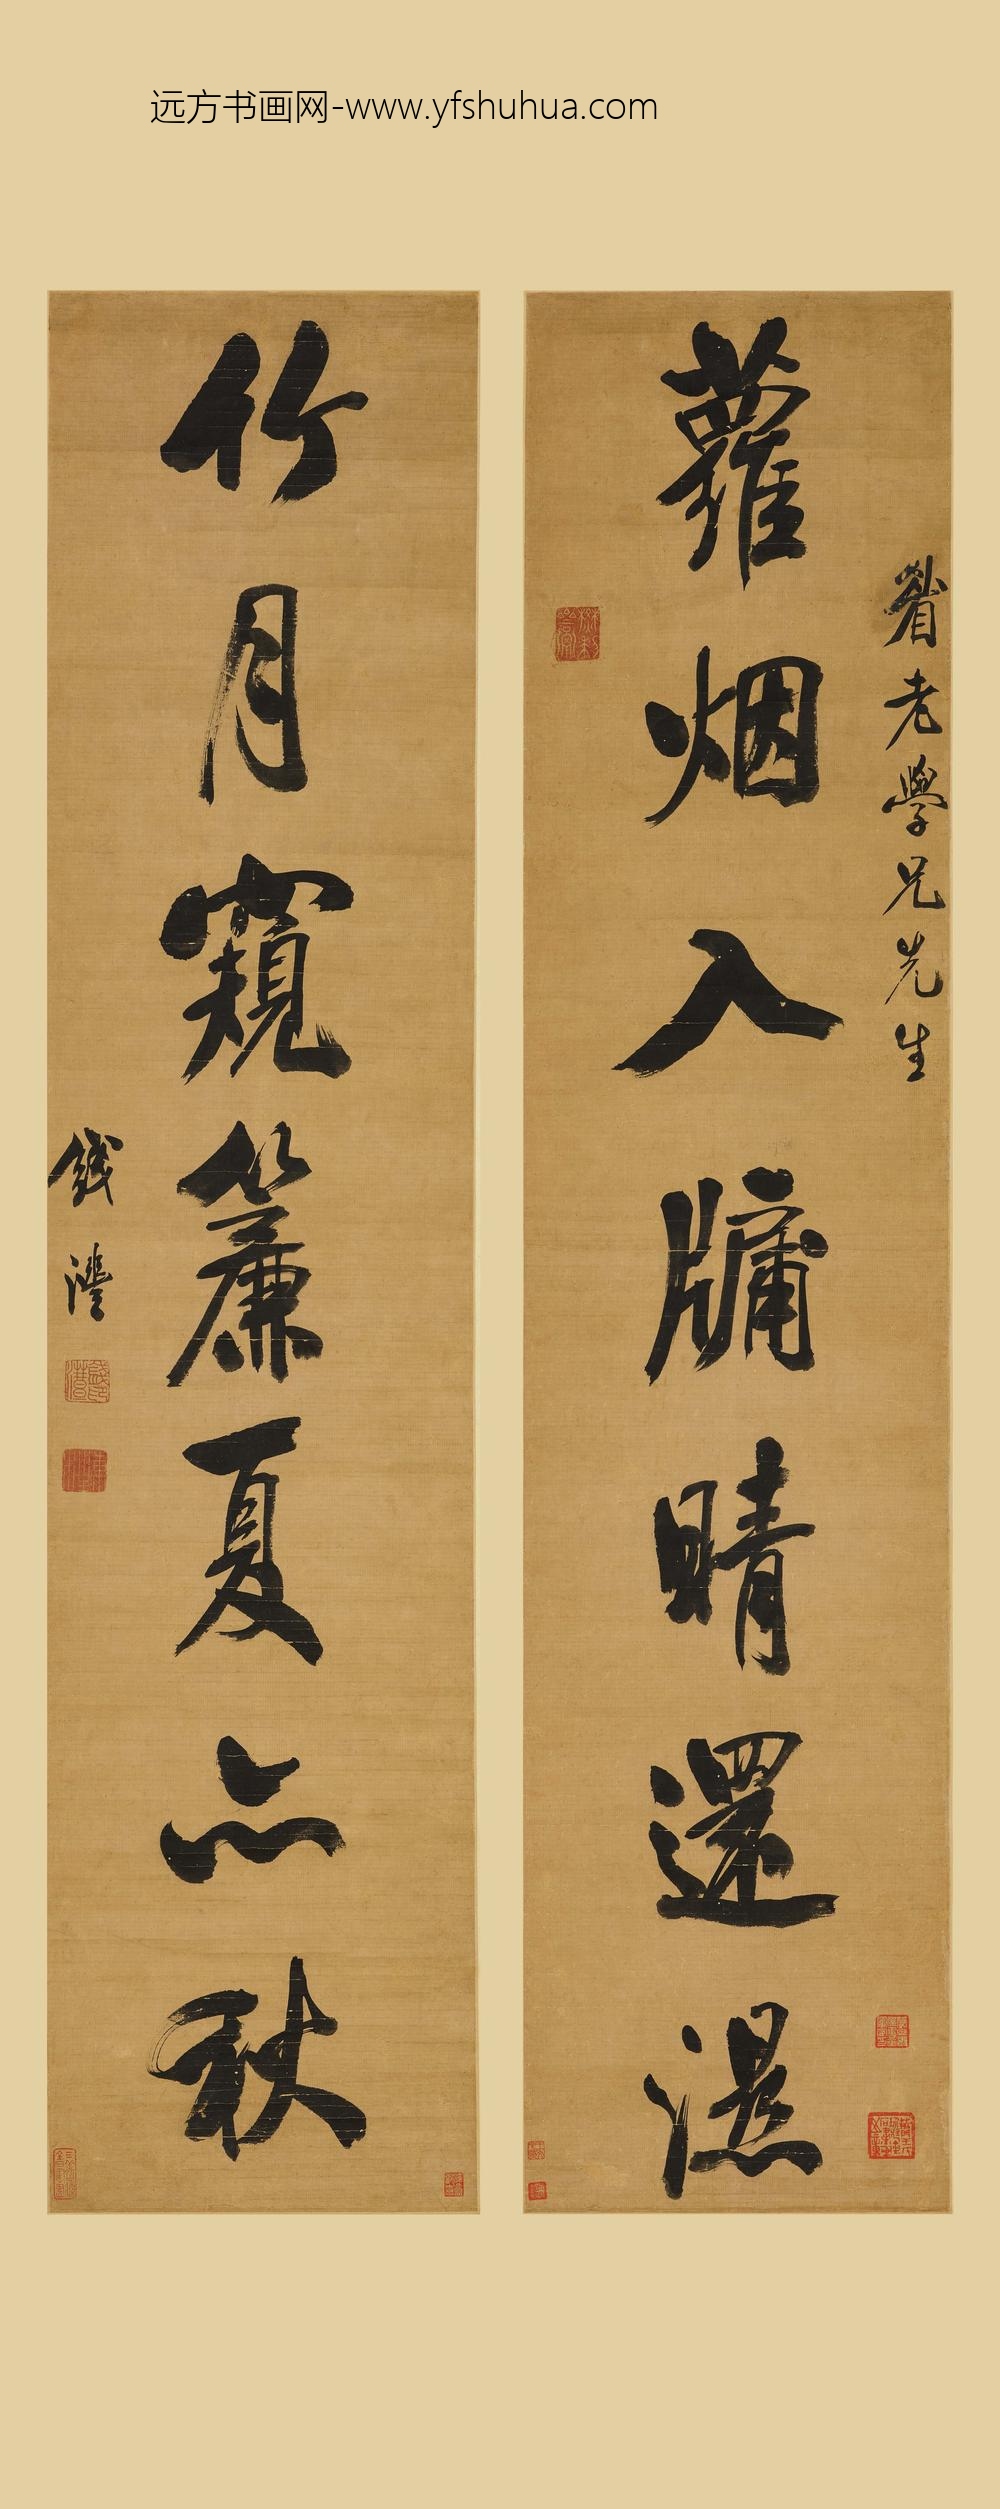 远方书画网-www.yfshuhua.com
蘿烟入牖晴還濕
老學兄先生
竹月窺簾夏亦秋
錢灃